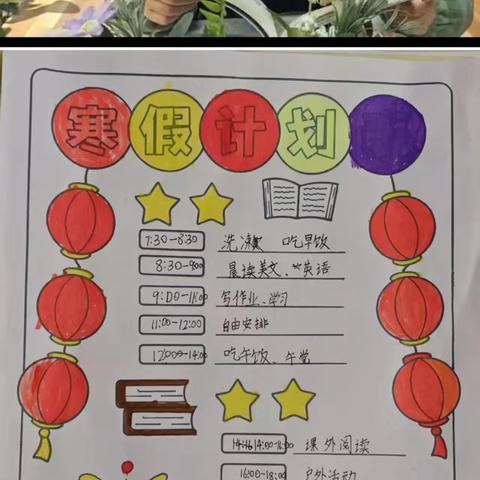 寒假计划
7:30-8:30 洗漱 吃早饭
8:30-9:00 晨读美文、英语
9:00-11:00 写作业、学习
11:00-12:00 自由安排
12:00-14:00 吃午饭、午觉
14:00-16:00 课外阅读
16:00-18:00 户外活动